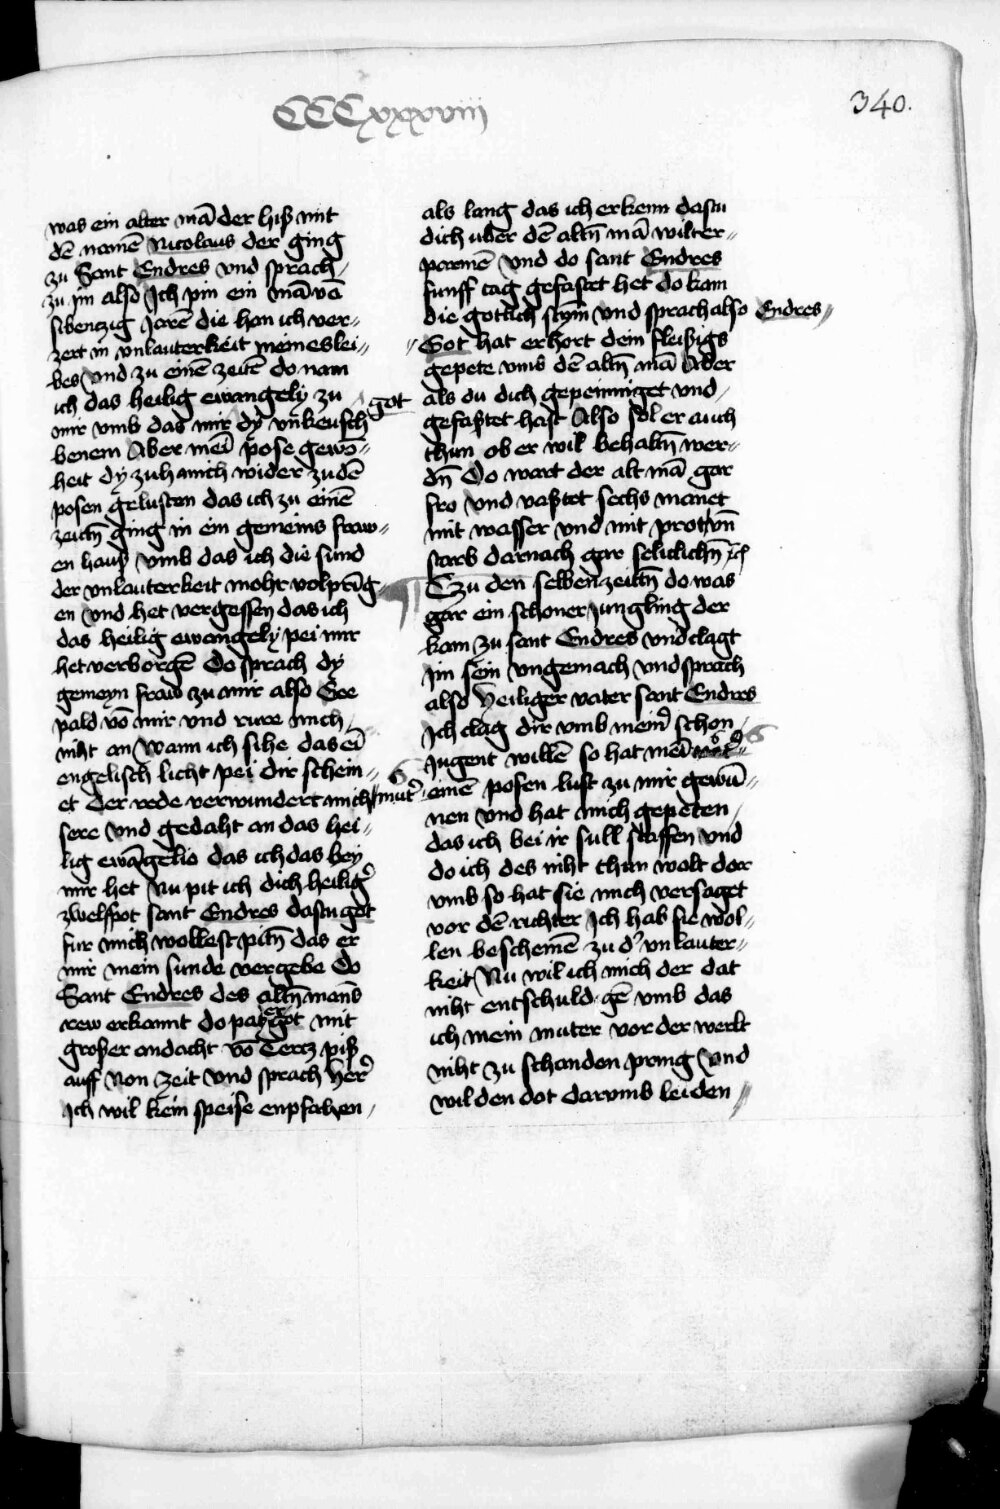 CCCxxxviii
340.
was ein alter mā der hiß mit
dē namē Nicolaus der ging
zu Sant Endres vnd sprach
zu im also Ich pin ein mā vō
sibentzig Jarē die han ich ver„
zert in vnlauterkeit meines lei„
bes vnd zu einē zeitē do nam
ich das heilig ewangely zu
mir vmb das mir dy vnkeusch got
benem Aber mei pose gewō„
heit dy zuh mich wider zu dē
posen gelusten das ich zu einē
zeitn̄ ging in ein gemeins fraw„
en hauß vmb das ich die sund
der vnlauterkeit mohr volprīg„
en vnd het vergessen das ich
das heilig ewangely pei mir
het verborgē Do sprach dy
gemeyn fraw zu mir also Gee
pald vō mir vnd rure mich
niht an wann ich sihe das eī
engelisch licht pei dir schein„
et Der rede verwundert mich
sere vnd gedaht an das hei„
lig ewāgelio das ich das bey
mir het Nu pit ich dich heilig̉
zwelfpot sant Endres dastu got
fur mich wollest pitn̄ das er
mir mein sunde vergebe Do
Sant Endres des altn̄ manēs
rew erkannt do pat er got mit
großer andacht vō Tertz piß
auff Non zeit vnd sprach Her̉
Ich wil kein speise enpfahen
als lang das ich erkenn dastu
dich uber dē altn̄ mā wilter„
parmē vnd do sant Endres
funff tag gefastet het do kam
die gotlich stym vnd sprach also Endres„
Got hat erhort dein fleißigs
gepete vmb dē altn̄ mā Aber
als du dich gepeinniget vnd
gefastet hast Also sol er auch
thun ob er wil behaltn̄ wer„
dn̄ Do wart der alt mā gar
fro vnd vastet sechs manet
mit wasser vnd mit prot vn̄
starb darnach gar seliclichn̄
Czu den selben zeitn̄ do was
gar ein schoner Jungling der
kam zu sant Endres vnd clagt
Im sein vngemach vnd sprach
also Heiliger vater sant Endres
Ich clag dir vmb mein̉ schon
Jugent willē so hat mei
mut̉ einē posen lust zu mir gewū„
nen vnd hat mich gepeten
das ich bei ir sull slaffen vnd
do ich des niht thun wolt dar
vmb so hat sie mich versaget
vor dē richter Ich hab sie wol„
len beschemē zu d̉ vnlauter„
keit Nu wil ich mich der dat
niht entschuldigē vmb das
ich mein muter vor der werlt
niht zu schanden pring vnd
wil den dot darvmb leiden